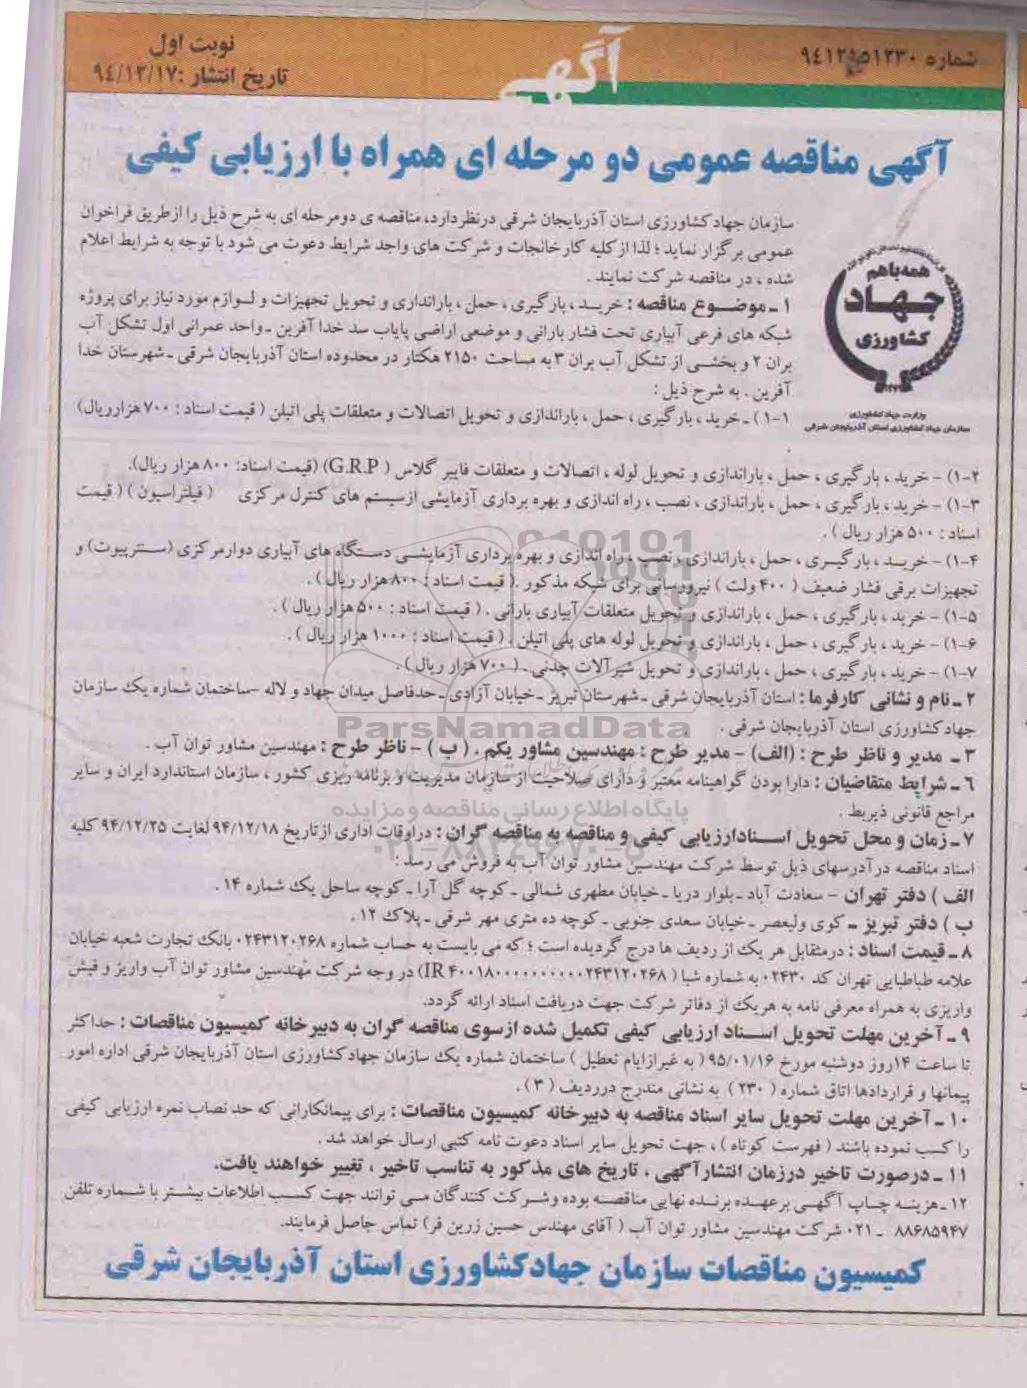 شماره ۹۴۱۲۹۵۱۲۳۰
آگهی
نوبت اول
تاریخ انتشار :۹۴/۱۲/۱۷
آگهی مناقصه عمومی دو مرحله ای همراه با ارزیابی کیفی
سازمان جهاد کشاورزی استان آذربایجان شرقی درنظر دارد، مناقصه ی دومرحله ای به شرح ذیل را ازطریق فراخوان
عمومی برگزار نماید ؛ لذا از کلیه کارخانجات و شرکت های واجد شرایط دعوت می شود با توجه به شرایط اعلام
شده ، در مناقصه شرکت نمایند .
۱ ـ موضوع مناقصه : خرید ، بارگیری ، حمل ، باراندازی و تحویل تجهیزات و لوازم مورد نیاز برای پروژه
شبکه های فرعی آبیاری تحت فشار بارانی و موضعی اراضی پایاب سد خدا آفرین ـ واحد عمرانی اول تشکل آب
بران ۲ و بخشی از تشکل آب بران ۳ به مساحت ۲۱۵۰ هکتار در محدوده استان آذربایجان شرقی ـ شهرستان خدا
آفرین . به شرح ذیل :
۱-۱ ) ـ خرید ، بارگیری ، حمل ، باراندازی و تحویل اتصالات و متعلقات پلی اتیلن ( قیمت اسناد : ۷۰۰ هزارریال)
همه باهم
جهاد
کشاورزی
وزارت جهاد کشاورزی
سازمان جهاد کشاورزی استان آذربایجان شرقی
۱-۲) - خرید ، بارگیری ، حمل ، باراندازی و تحویل لوله ، اتصالات و متعلقات فایبر گلاس ( G.R.P) (قیمت اسناد: ۸۰۰ هزار ریال).
۱-۳) - خرید ، بارگیری ، حمل ، باراندازی ، نصب ، راه اندازی و بهره برداری آزمایشی ازسیستم های کنترل مرکزی ( فیلتراسیون ) ( قیمت
اسناد : ۵۰۰ هزار ریال ) .
۱-۴) - خرید ، بارگیری ، حمل ، باراندازی ، نصب ، راه اندازی و بهره برداری آزمایشی دستگاه های آبیاری دوارمرکزی (سنترپیوت) و
تجهیزات برقی فشار ضعیف ( ۴۰۰ ولت ) نیرورسانی برای شبکه مذکور .( قیمت اسناد : ۸۰۰ هزار ریال ) .
۱-۵) - خرید ، بارگیری ، حمل ، باراندازی و تحویل متعلقات آبیاری بارانی . ( قیمت اسناد : ۵۰۰ هزار ریال ) .
۱-۶) - خرید ، بارگیری ، حمل ، باراندازی و تحویل لوله های پلی اتیلن . ( قیمت اسناد : ۱۰۰۰ هزار ریال ) .
۱-۷) - خرید ، بارگیری ، حمل ، باراندازی و تحویل شیرآلات چدنی . ( ۷۰۰ هزار ریال ) .
۲ ـ نام و نشانی کارفرما : استان آذربایجان شرقی ـ شهرستان تبریز ـ خیابان آزادی ـ حدفاصل میدان جهاد و لاله -ساختمان شماره یک سازمان
جهاد کشاورزی استان آذربایجان شرقی .
ParsNamadData
۳ ـ مدیر و ناظر طرح : (الف) - مدیر طرح : مهندسین مشاور یکم . ( ب ) - ناظر طرح : مهندسین مشاور توان آب .
۶ ـ شرایط متقاضیان : دارا بودن گواهینامه معتبر و دارای صلاحیت از سازمان مدیریت و برنامه ریزی کشور ، سازمان استاندارد ایران و سایر
مراجع قانونی ذیربط .
پایگاه اطلاع رسانی مناقصه و مزایده
۷ ـ زمان و محل تحویل اسنادارزیابی کیفی و مناقصه به مناقصه گران : دراوقات اداری ازتاریخ ۹۴/۱۲/۱۸ لغایت ۹۴/۱۲/۲۵ کلیه
اسناد مناقصه درآدرسهای ذیل توسط شرکت مهندسین مشاور توان آب به فروش می رسد :
۰۲۱-۸۸۳۴۹۶۷۰-۵
الف ) دفتر تهران - سعادت آباد ـ بلوار دریا ـ خیابان مطهری شمالی ـ کوچه گل آرا ـ کوچه ساحل یک شماره ۱۴ .
ب ) دفتر تبریز ـ کوی ولیعصر ـ خیابان سعدی جنوبی ـ کوچه ده متری مهر شرقی ـ پلاک ۱۲ .
۸ ـ قیمت اسناد : درمقابل هر یک از ردیف ها درج گردیده است ؛ که می بایست به حساب شماره ۰۲۴۳۱۲۰۲۶۸ بانک تجارت شعبه خیابان
علامه طباطبایی تهران کد ۰۲۴۳۰ به شماره شبا ( IR ۴۰۰۱۸۰۰۰۰۰۰۰۰۰۰۰۲۴۳۱۲۰۲۶۸) در وجه شرکت مهندسین مشاور توان آب واریز و فیش
واریزی به همراه معرفی نامه به هریک از دفاتر شرکت جهت دریافت اسناد ارائه گردد.
۹ ـ آخرین مهلت تحویل اسناد ارزیابی کیفی تکمیل شده ازسوی مناقصه گران به دبیرخانه کمیسیون مناقصات : حداکثر
تا ساعت ۱۴روز دوشنبه مورخ ۹۵/۰۱/۱۶ ( به غیرازایام تعطیل ) ساختمان شماره یک سازمان جهاد کشاورزی استان آذربایجان شرقی اداره امور
پیمانها و قراردادها اتاق شماره ( ۲۳۰ ) به نشانی مندرج درردیف ( ۳ ) .
۱۰ ـ آخرین مهلت تحویل سایر اسناد مناقصه به دبیرخانه کمیسیون مناقصات : برای پیمانکارانی که حد نصاب نمره ارزیابی کیفی
را کسب نموده باشند ( فهرست کوتاه ) ، جهت تحویل سایر اسناد دعوت نامه کتبی ارسال خواهد شد .
۱۱ ـ درصورت تاخیر درزمان انتشارآگهی ، تاریخ های مذکور به تناسب تاخیر ، تغییر خواهند یافت.
۱۲ ـ هزینه چاپ آگهی برعهده برنده نهایی مناقصه بوده وشرکت کنندگان می توانند جهت کسب اطلاعات بیشتر با شماره تلفن
۸۸۶۸۵۹۴۷ ـ ۰۲۱ شرکت مهندسین مشاور توان آب ( آقای مهندس حسین زرین فر) تماس حاصل فرمایند.
کمیسیون مناقصات سازمان جهاد کشاورزی استان آذربایجان شرقی